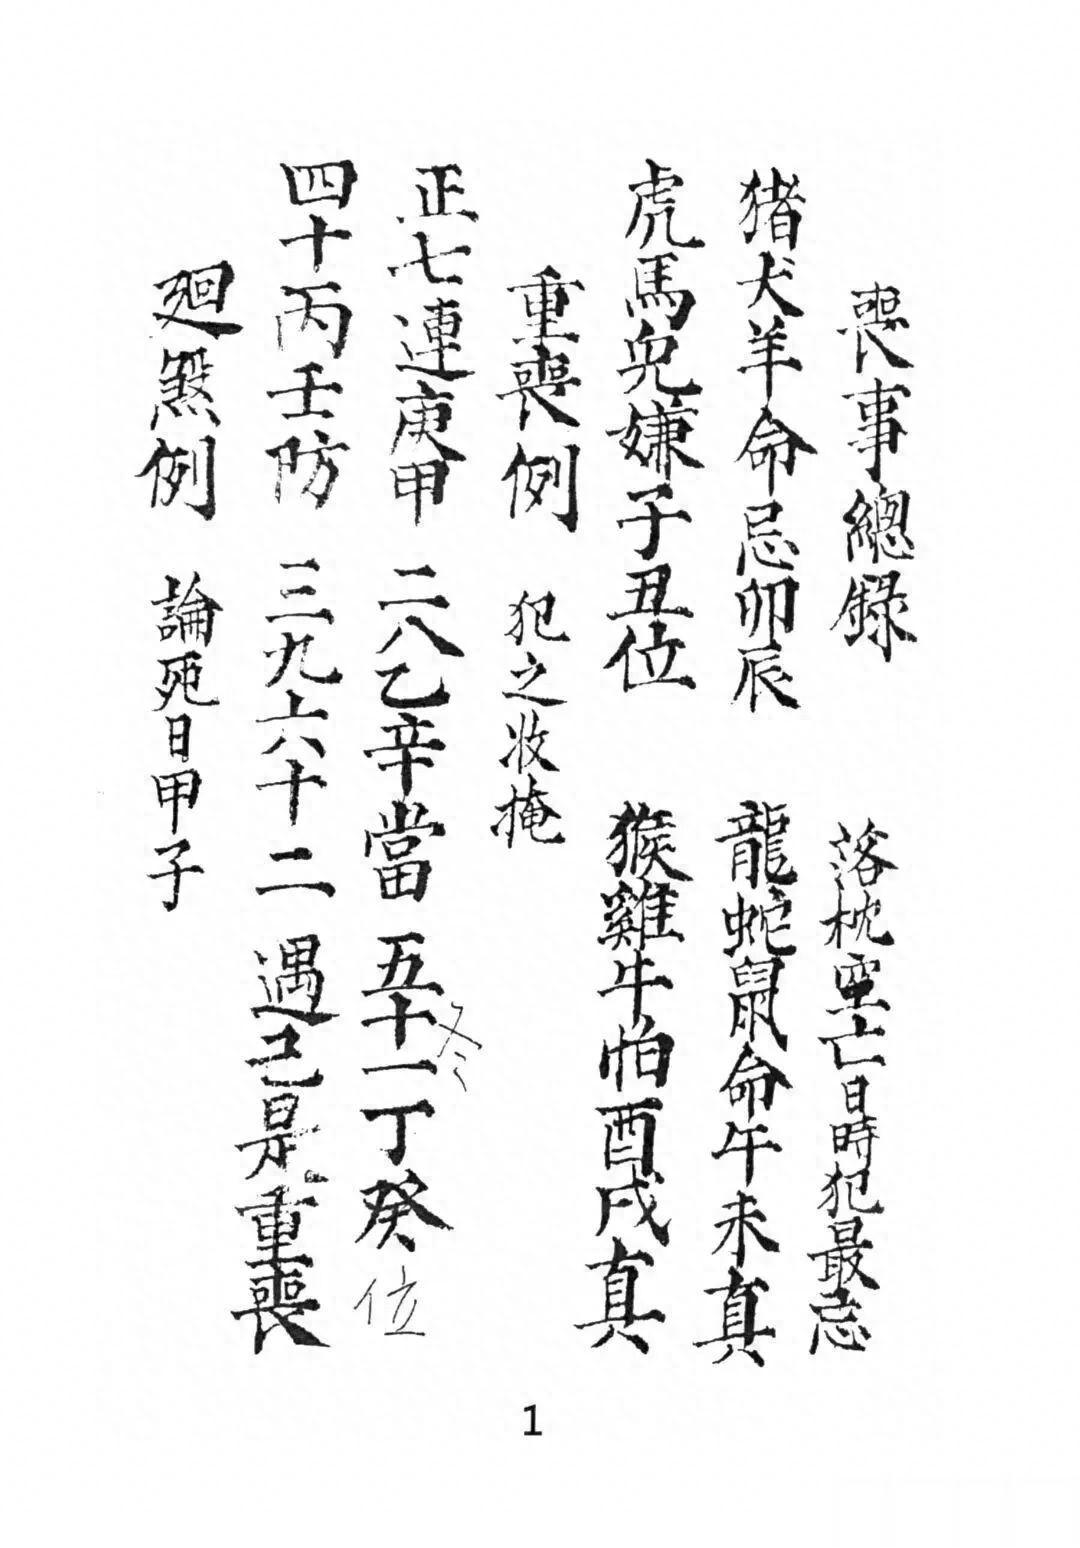 喪事總錄　落枕空亡日時犯最忌
猪犬羊命忌卯辰　龍蛇鼠命午未真
虎馬兔嫌子丑位　猴雞牛怕酉戌真
重喪例　犯之收掩
正七連庚甲　二八乙辛當　五十一丁癸
冬
位
四十丙壬防　三九六十二　遇己是重喪
廻煞例　論死日甲子
1